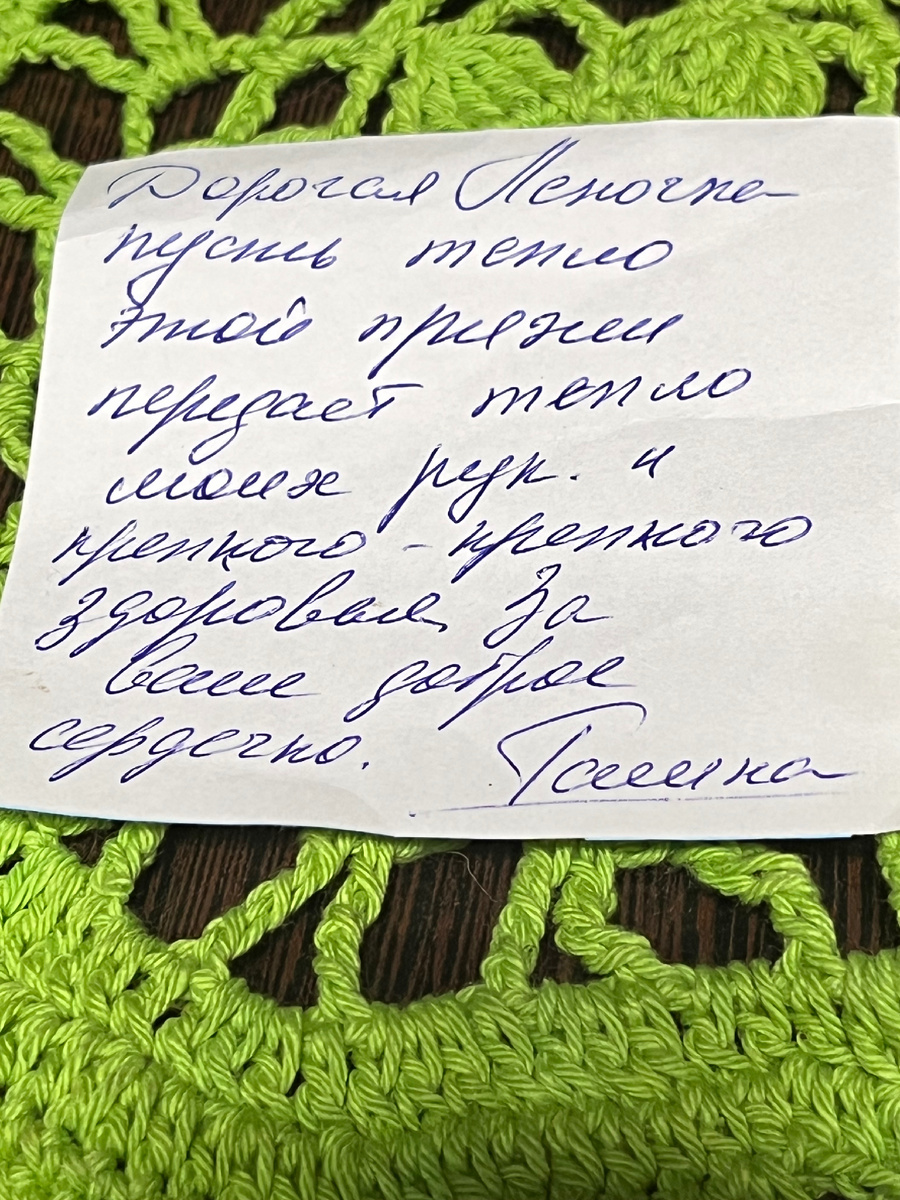 Дорогая Леночка
пусть тепло
этой пряжи
передаёт тепло
моих рук. и
крепкого - крепкого
здоровья, За
ваше доброе
сердечко.
Галина